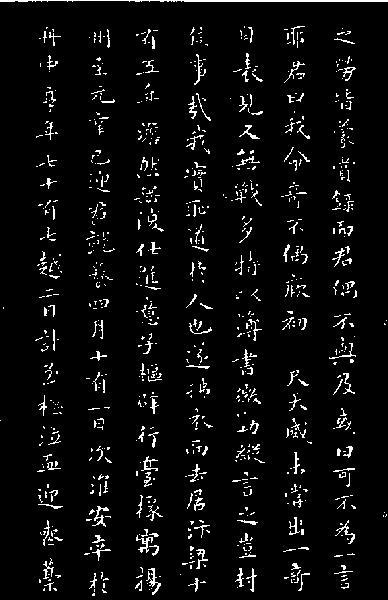 之勞皆蒙賞錄而君偶不與及或曰可不為一言
耶君曰我命奇不偶厥初 尺天威未嘗出一奇
自表見又無戰多特以簿書微功縱言之豈封
侯事哉我實恥道於人也遂拂衣而去居汴梁十
有五年澹然無復仕進意子樞辟行臺掾寓揚
州至元 己迎君就養四月十有一日次淮安卒於
舟中享年七十有七越二日訃至樞泣血迎喪藁